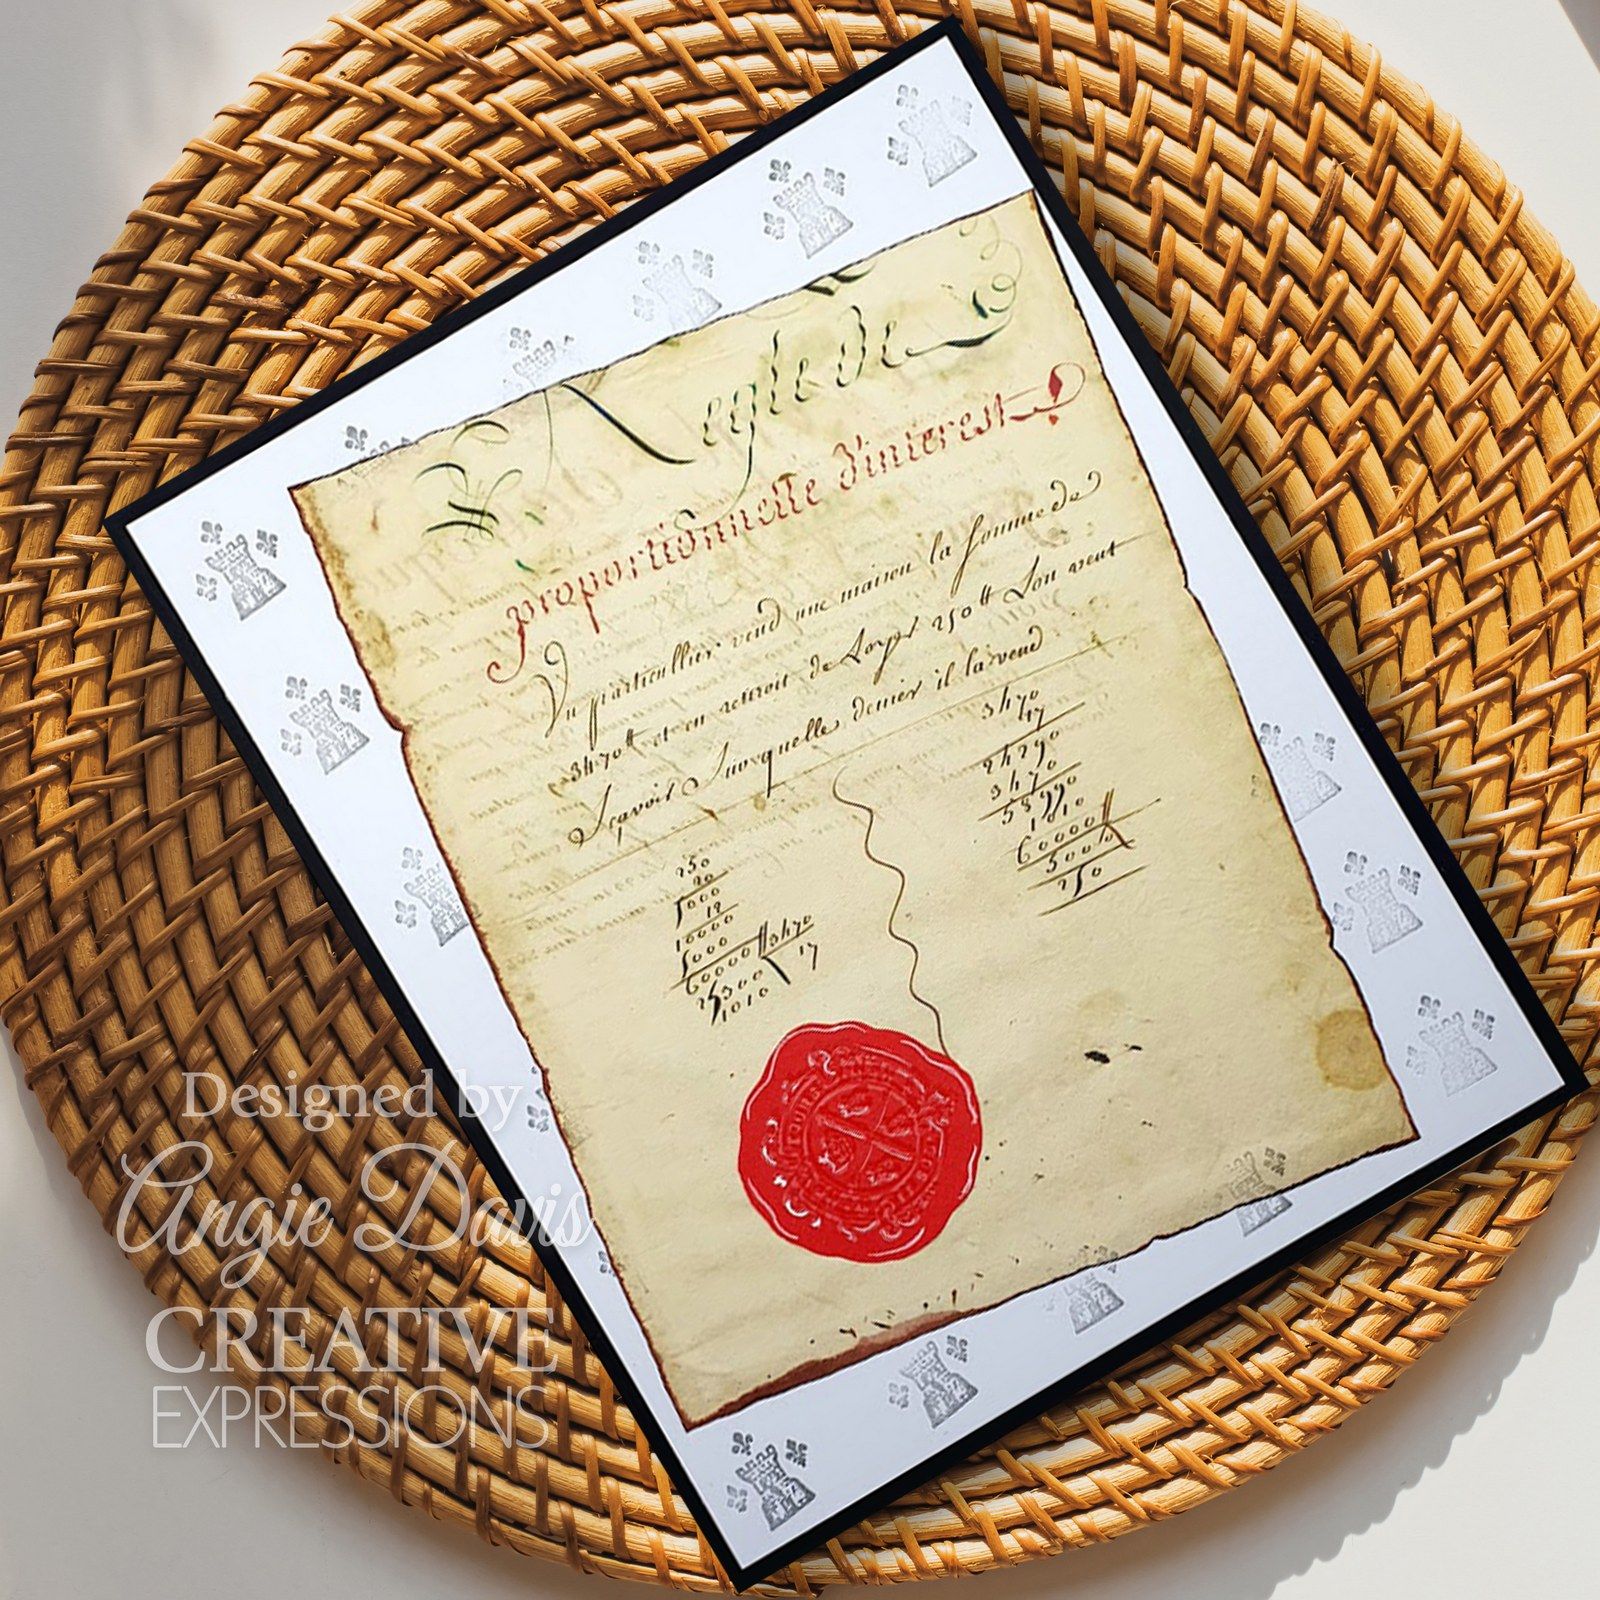 Regle de
proportionnelle d'interest
Un particullier vend une maison la somme de
3470tt et en rettroit de Loyer 250tt Lon veut
Sçavoir Sur quelle denier il la vend
250
20
5000
12
10000
5000
60000 3470
25300 17
1010
3470
17
24290
3470
58990
1010
60000
5000
250
Designed by
Angie Davis
CREATIVE
EXPRESSIONS